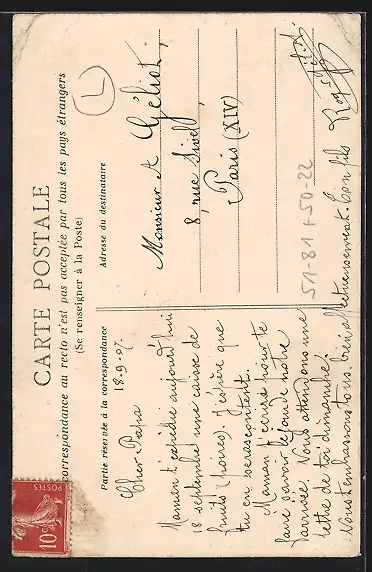 CARTE POSTALE
correspondance au recto n'est pas acceptée par tous les pays étrangers
(Se renseigner à la Poste)
Partie réservée à la correspondance
Adresse du destinataire
18.9.07.
Cher Papa
Maman t'expédie aujourd'hui
18 septembre une caisse de
fruits (poires). J'espère que
tu en seras content.
Maman t'écrira pour te
faire savoir le jour de notre
arrivée. Nous attendons une
lettre de toi dimanche.
Nous t'embrassons tous bien affectueusement. Ton fils
Roger
Monsieur A Géliot,
8, rue Sivel,
Paris (XIV)
L
51-81+50-22
POSTES
10c